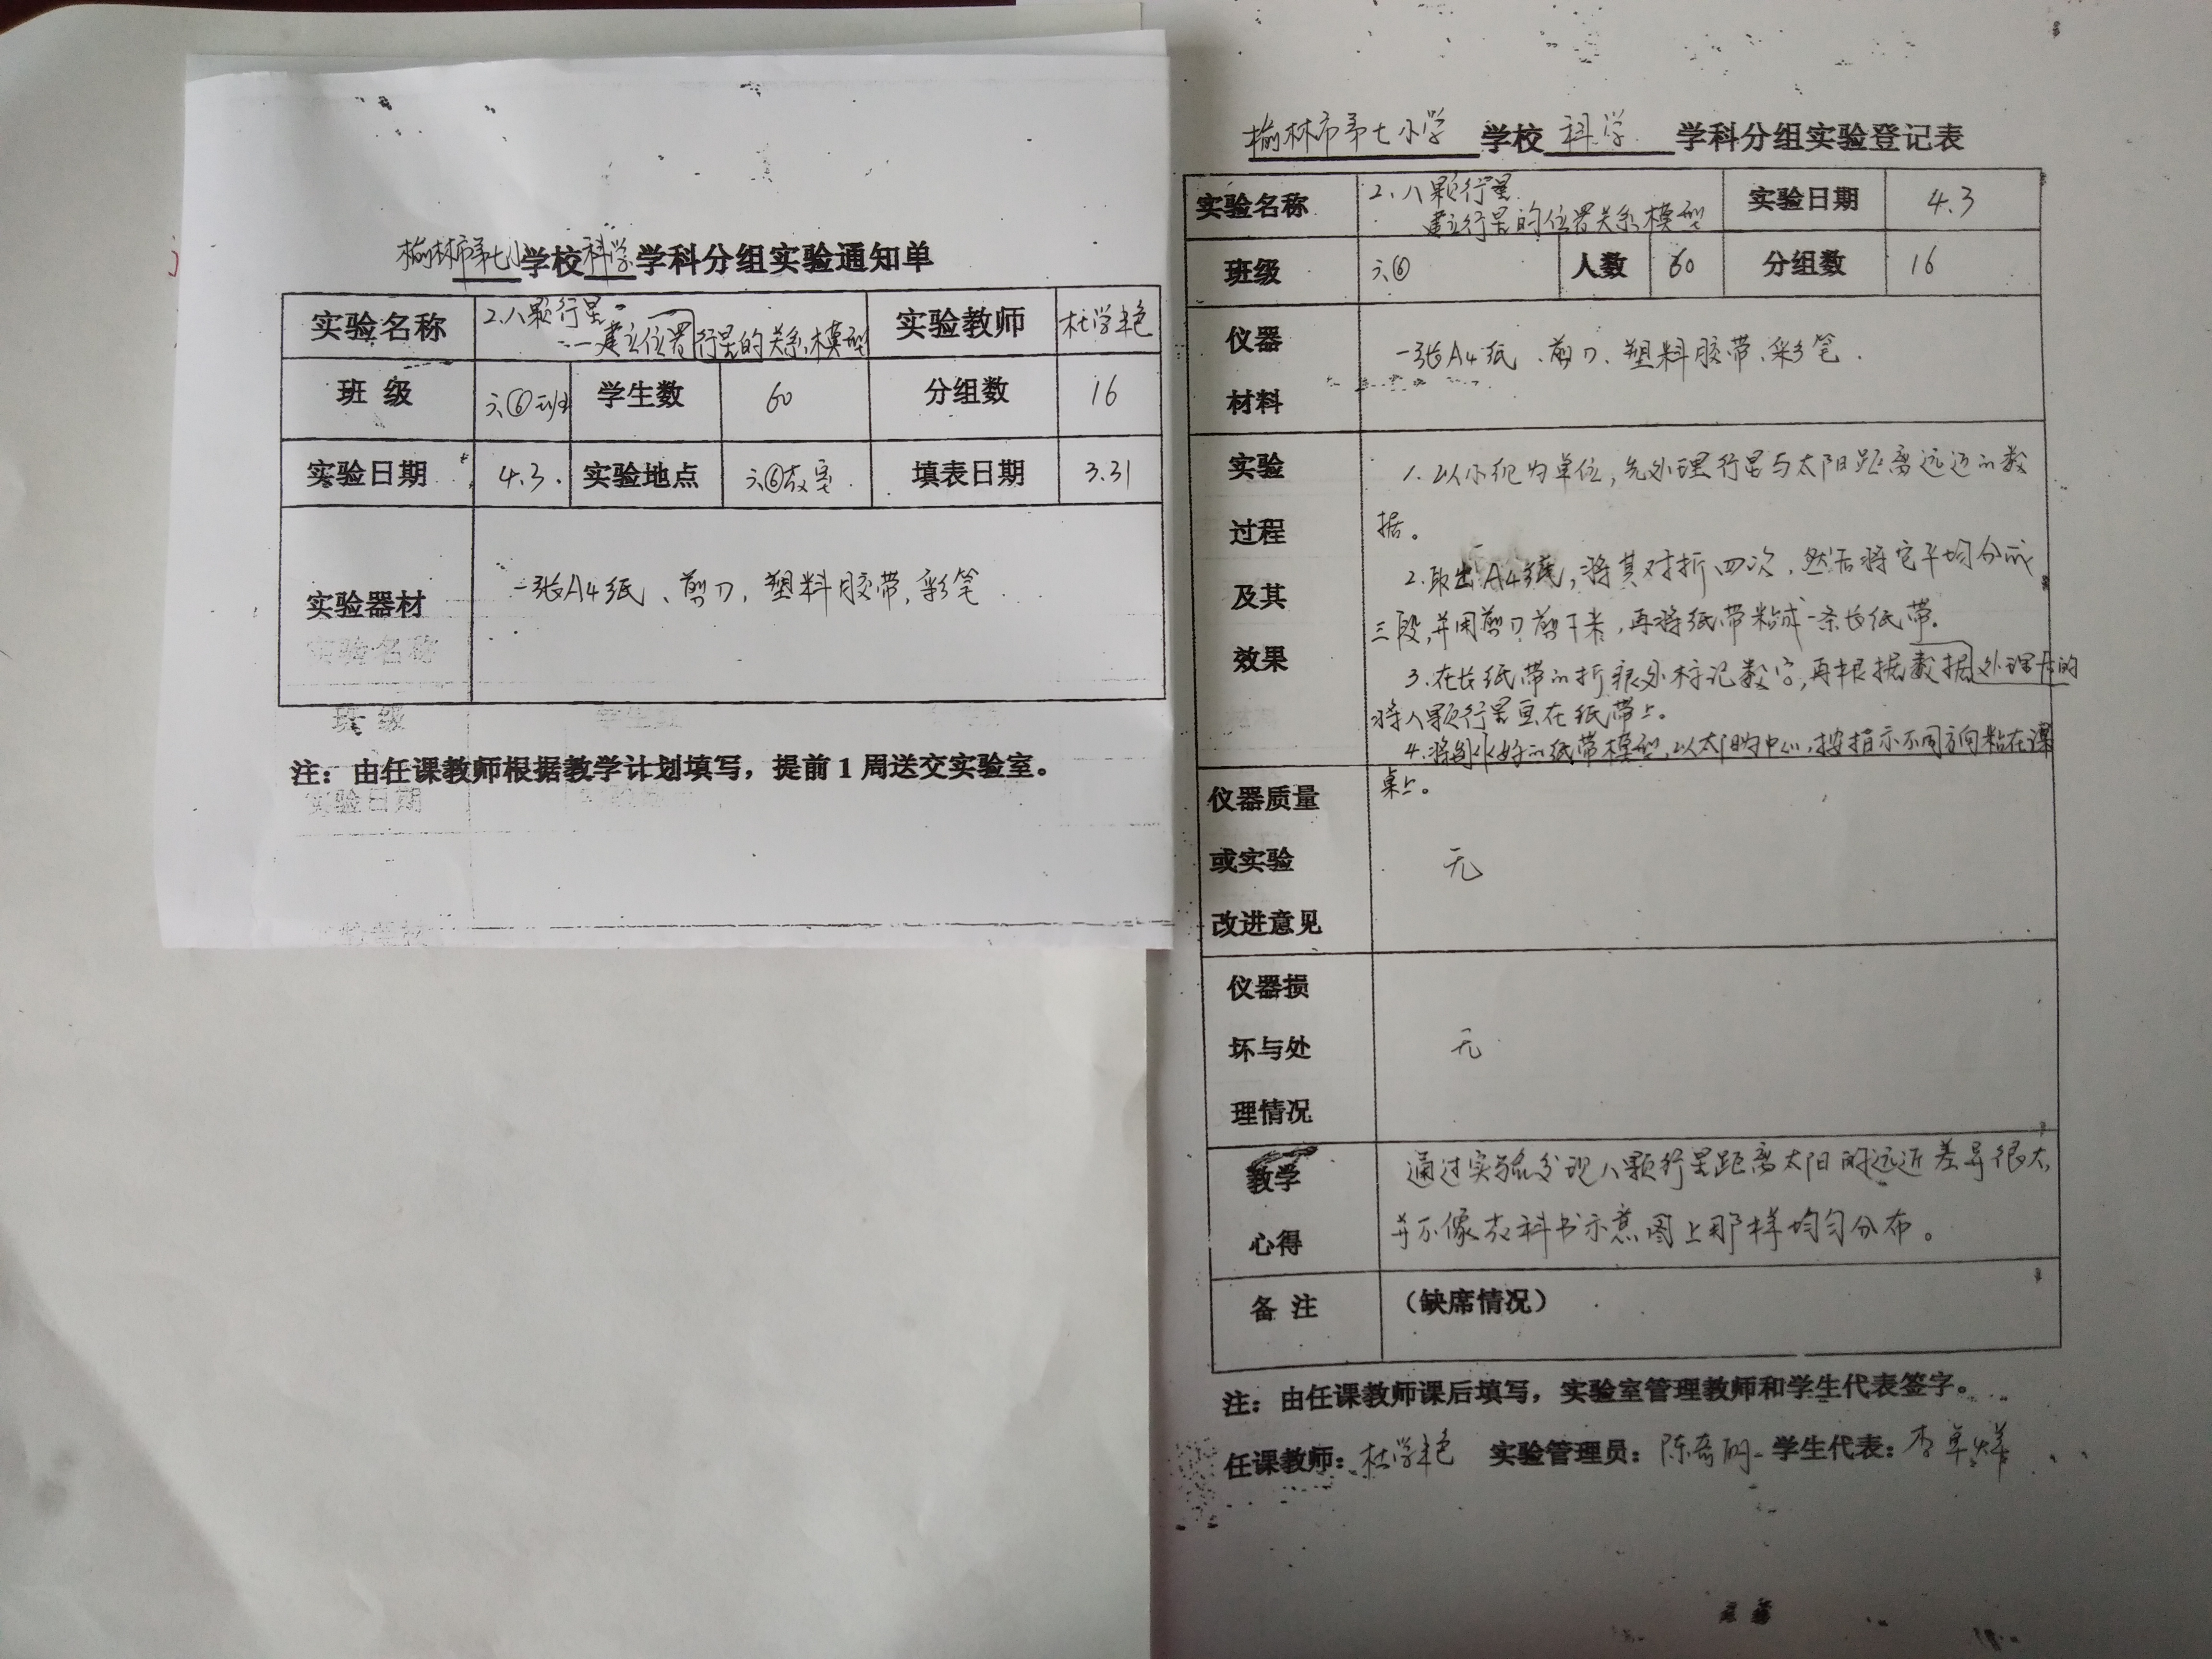 榆林市第七小学校科学学科分组实验通知单
实验名称 2.八颗行星 实验教师 杜学艳
——建立位置行星的关系模型
班 级 六⑥班 学生数 60 分组数 16
实验日期 4.3. 实验地点 六⑥教室. 填表日期 3.31
实验器材 一张A4纸、剪刀,塑料胶带,彩笔
实验名称
班 级
注：由任课教师根据教学计划填写，提前1周送交实验室。
实验日期
榆林市第七小学 学校 科学 学科分组实验登记表
实验名称 2.八颗行星 实验日期 4.3
建立行星的位置关系模型
班级 六⑥ 人数 60 分组数 16
仪器
材料
一张A4纸、剪刀、塑料胶带、彩笔.
实验
过程
及其
效果
1.以小组为单位,先处理行星与太阳距离远近的数
据。
2.取出A4纸,将其对折四次,然后将它平均分成
三段,并用剪刀剪下来,再将纸带粘成一条长纸带.
3.在长纸带的折痕处标记数字,再根据数据处理后的
将八颗行星画在纸带上。
4.将制作好的纸带模型,以太阳为中心,按指示不同方向粘在课
桌上。
仪器质量
或实验
改进意见
无
仪器损
坏与处
理情况
无
教学
心得
通过实验发现八颗行星距离太阳的远近差异很大,
并不像教科书示意图上那样均匀分布。
备 注 （缺席情况）
注：由任课教师课后填写，实验室管理教师和学生代表签字。
任课教师：杜学艳 实验管理员：陈奇明 学生代表：李卓烨